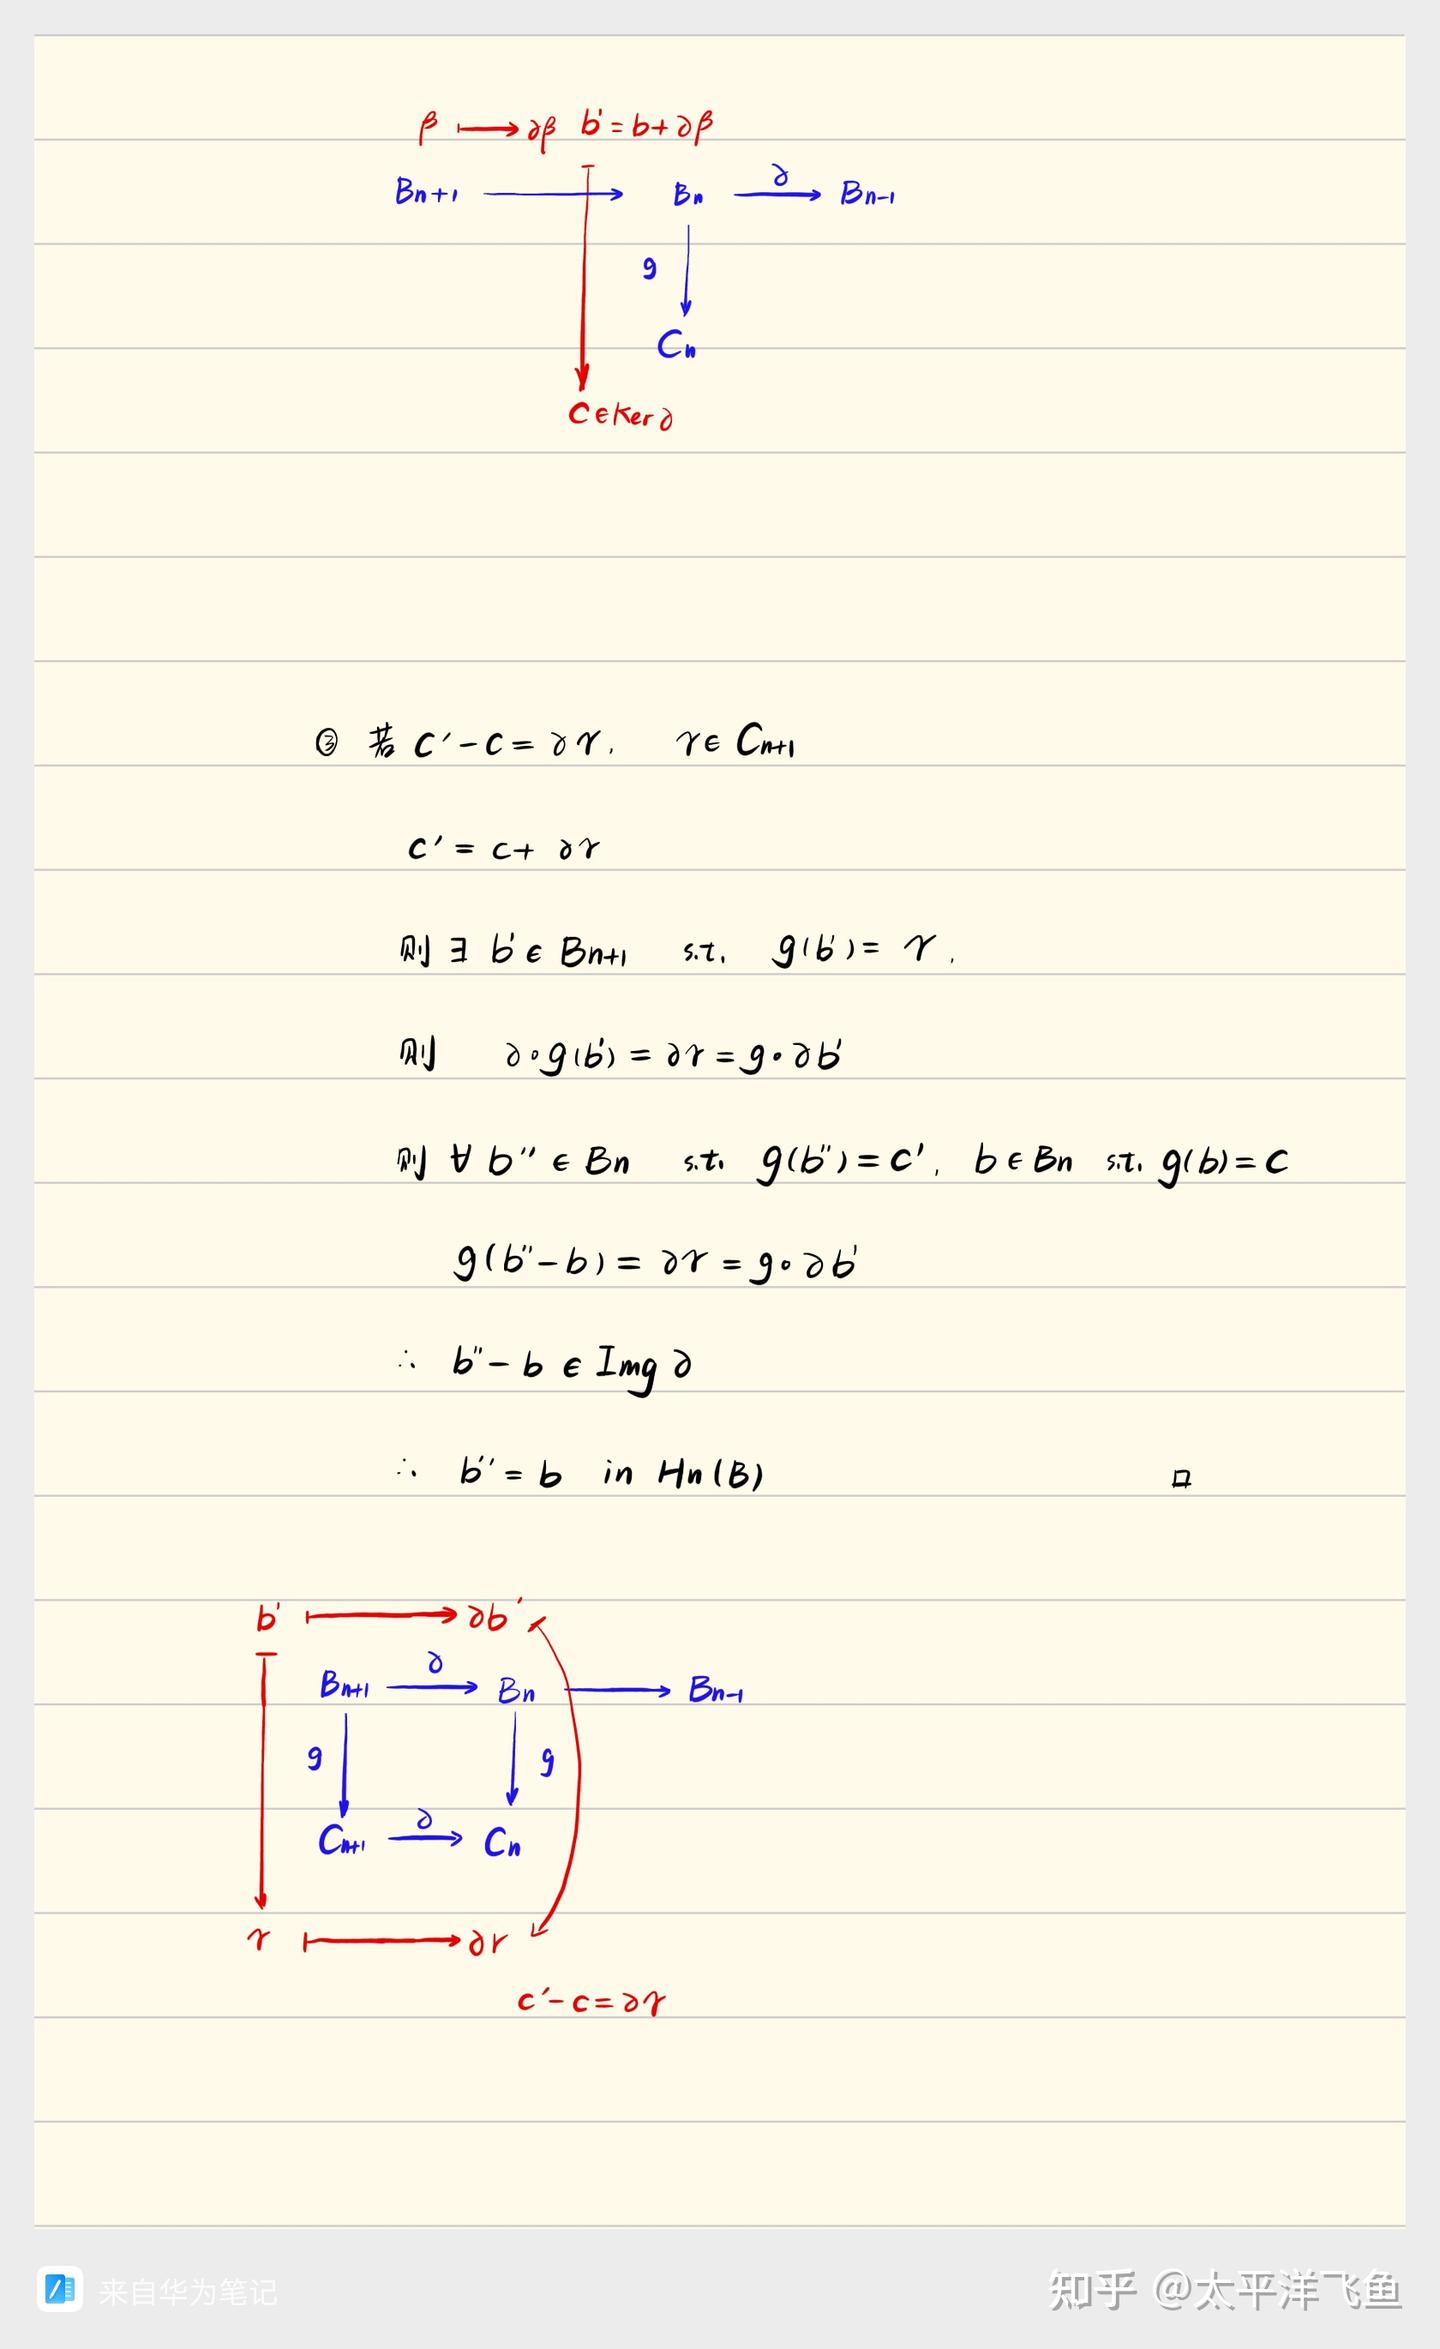 β ⟼ ∂β b' = b + ∂β
Bn+1 ⟶ Bn ⟶ Bn-1
∂
g
Cn
C ∈ Ker ∂
③ 若 C' - C = ∂γ, γ ∈ Cn+1
C' = C + ∂γ
则 ∃ b' ∈ Bn+1 s.t. g(b') = γ.
则 ∂∘g(b') = ∂γ = g∘∂b'
则 ∀ b'' ∈ Bn s.t. g(b'') = C', b ∈ Bn s.t. g(b) = C
g(b'' - b) = ∂γ = g∘∂b'
∴ b'' - b ∈ Img ∂
∴ b'' = b in Hn(B) □
b' ⟼ ∂b'
∂
Bn+1 ⟶ Bn ⟶ Bn-1
g g
∂
Cn+1 ⟶ Cn
γ ⟼ ∂γ
C' - C = ∂γ
来自华为笔记
知乎 @太平洋飞鱼